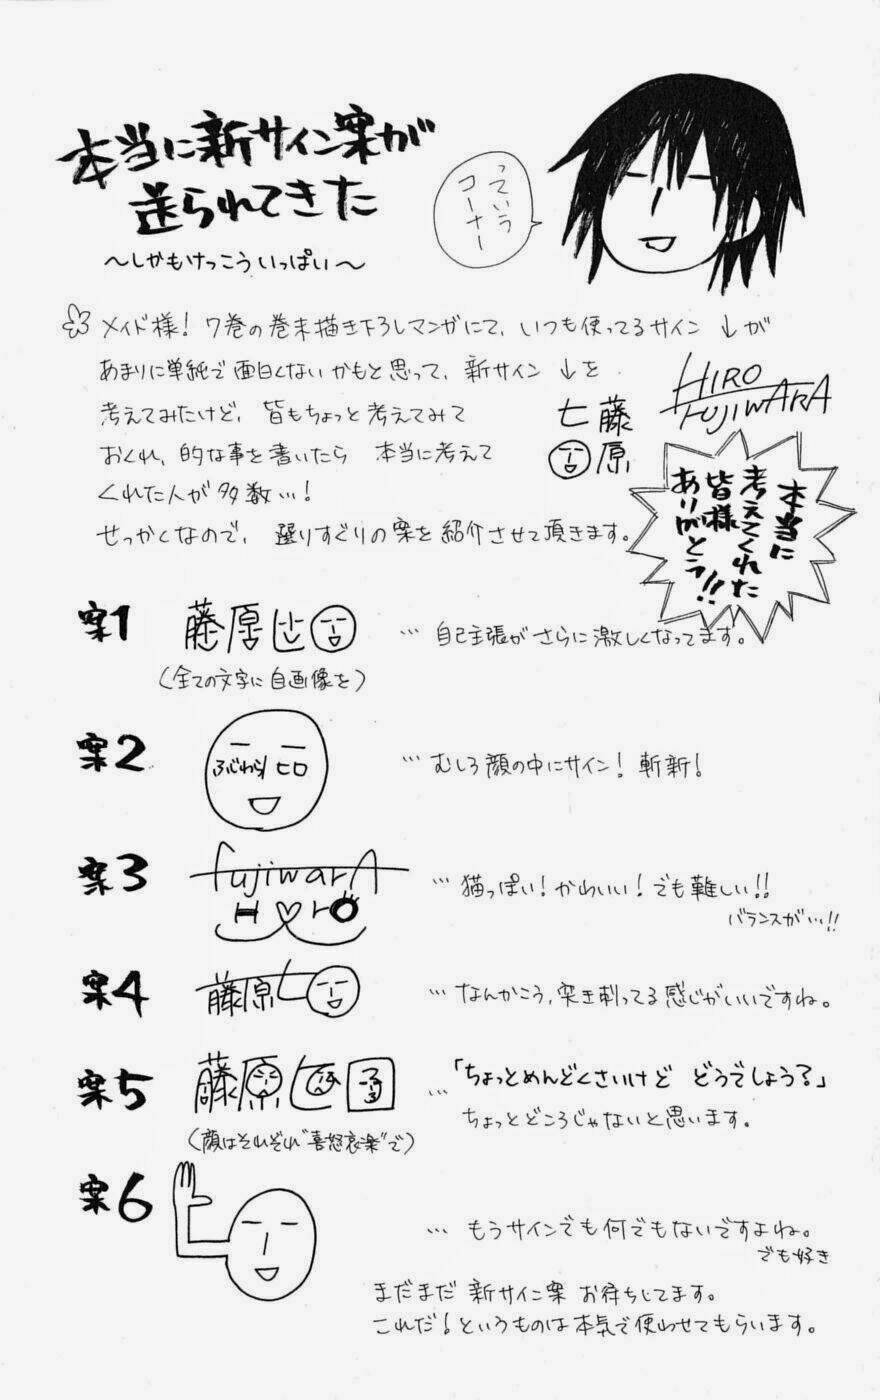 本当に新サイン案が
送られてきた
〜しかもけっこういっぱい〜
っていう
コーナー
メイド様！7巻の巻末描き下ろしマンガにて、いつも使ってるサイン↓が
あまりに単純で面白くないかもと思って、新サイン↓を
考えてみたけど、皆もちょっと考えてみて
おくれ、的な事を書いたら 本当に考えて
くれた人が多数…！
せっかくなので、選りすぐりの案を紹介させて頂きます。
HIRO
FUJIWARA
藤原
ヒ
本当に
考えてくれた
皆様
ありがとう!!
案1
藤原ヒロ
…自己主張がさらに激しくなってます。
（全ての文字に自画像を）
案2
ふじわら ヒロ
…むしろ顔の中にサイン！斬新！
案3
fujiwarA
H♡rO
…猫っぽい！かわいい！でも難しい!!
バランスが…!!
案4
藤原ヒ
…なんかこう、突き刺ってる感じがいいですね。
案5
藤原ヒロ
…「ちょっとめんどくさいけど どうでしょうる」
ちょっとどころじゃないと思います。
（顔はそれぞれ"喜怒哀楽"で）
案6
…もうサインでも何でもないですよね。
でも好き
まだまだ 新サイン案 お待ちしてます。
これだ！というものは本気で使わせてもらいます。